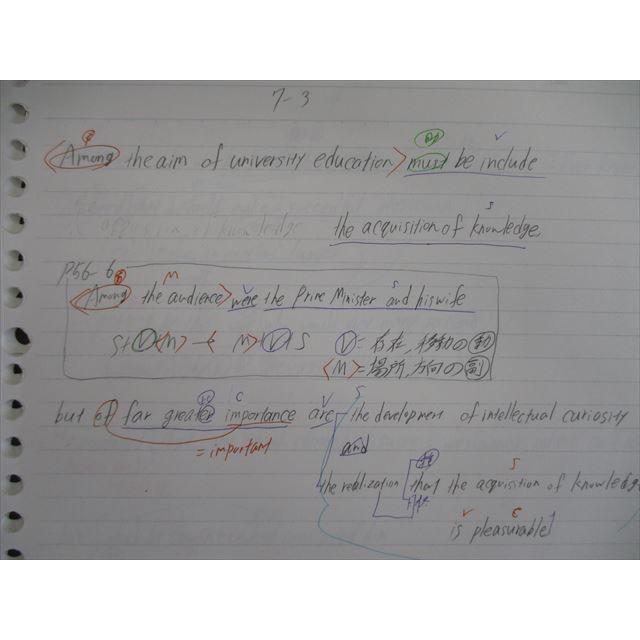 7-3
<Among the aim of university education> must be include
the acquisition of knowledge.
P56-6
<Among the audience> were the Prime Minister and his wife
S+V+<M> → <M>+V+S Ⓥ=存在,移動の動
<M>=場所,方向の副
but of far greater importance are the development of intellectual curiosity
= important
and
the realization that the acquisition of knowledge
is pleasurable